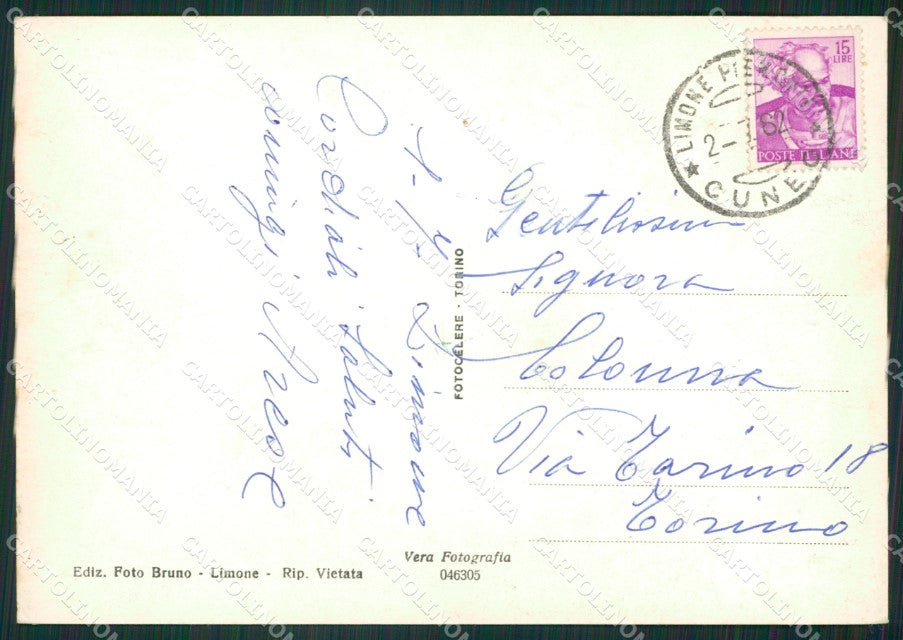 Limone
Cordiali Saluti
15
LIRE
POSTE ITALIANE
LIMONE PIEMONTE
2- 62
CUNEO
Gentilissima
Signora
Colonna
Via Torino 18
Torino
FOTOCELERE - TORINO
Vera Fotografia
046305
Ediz. Foto Bruno - Limone - Rip. Vietata
CARTOLINOMANIA